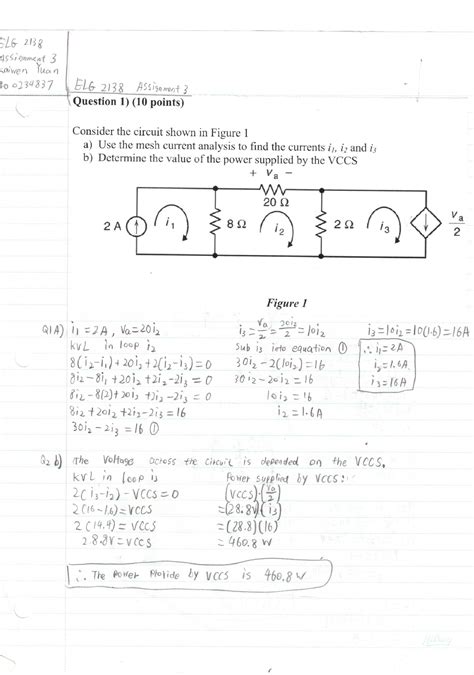 ELG 2138
Assignment 3
Kaiwen Yuan
ELG 2138 Assignment 3
Question 1) (10 points)
Consider the circuit shown in Figure 1
a) Use the mesh current analysis to find the currents i1, i2 and i3
b) Determine the value of the power supplied by the VCCS
+ Va −
20 Ω
2 A
i1
8 Ω
i2
2 Ω
i3
Va
2
Figure 1
Q1A) i1 = 2A, Va = 20i2
KVL in loop i2
8(i2-i1)+20i2+2(i2-i3)=0
8i2-8i1+20i2+2i2-2i3=0
8i2-8(2)+20i2+2i2-2i3=0
8i2+20i2+2i2-2i3=16
30i2-2i3=16 ①
i3=Va/2=20i2/2=10i2
Sub i3 into equation ①
30i2-2(10i2)=16
30i2-20i2=16
10i2=16
i2=1.6A
i3=10i2=10(1.6)=16A
∴ i1=2A
i2=1.6A
i3=16A
Q2 b) The Voltage across the circuit is depended on the VCCS,
KVL in loop i3
2(i3-i2)-VCCS=0
2(16-1.6)=VCCS
2(14.4)=VCCS
28.8V=VCCS
Power supplied by VCCS:
(VCCS)·(Va/2)
=(28.8V)(i3)
=(28.8)(16)
=460.8 W
∴ The Power Provide by VCCS is 460.8 W